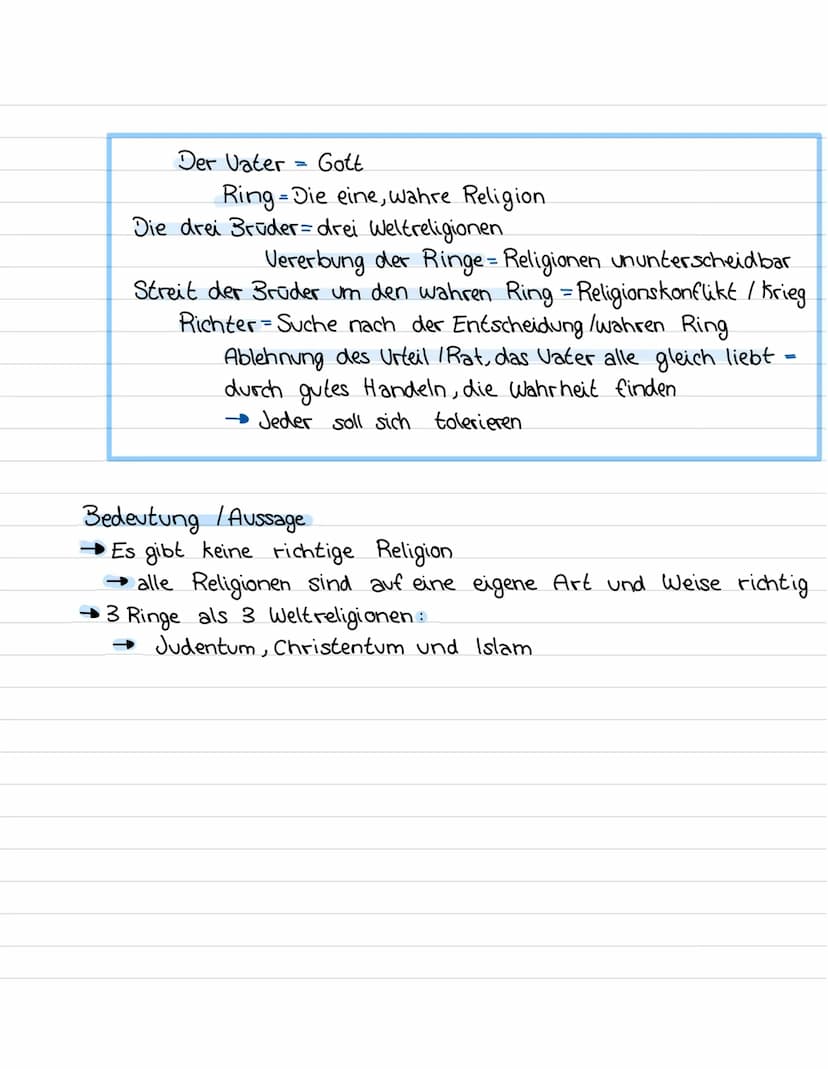 Der Vater = Gott
Ring = Die eine, wahre Religion
Die drei Brüder = drei Weltreligionen
Vererbung der Ringe = Religionen ununterscheidbar
Streit der Brüder um den wahren Ring = Religionskonflikt / Krieg
Richter = Suche nach der Entscheidung / wahren Ring
Ablehnung des Urteil / Rat, das Vater alle gleich liebt =
durch gutes Handeln, die Wahrheit finden
→ Jeder soll sich tolerieren
Bedeutung / Aussage
→ Es gibt keine richtige Religion
→ alle Religionen sind auf eine eigene Art und Weise richtig
→ 3 Ringe als 3 Weltreligionen:
→ Judentum, Christentum und Islam